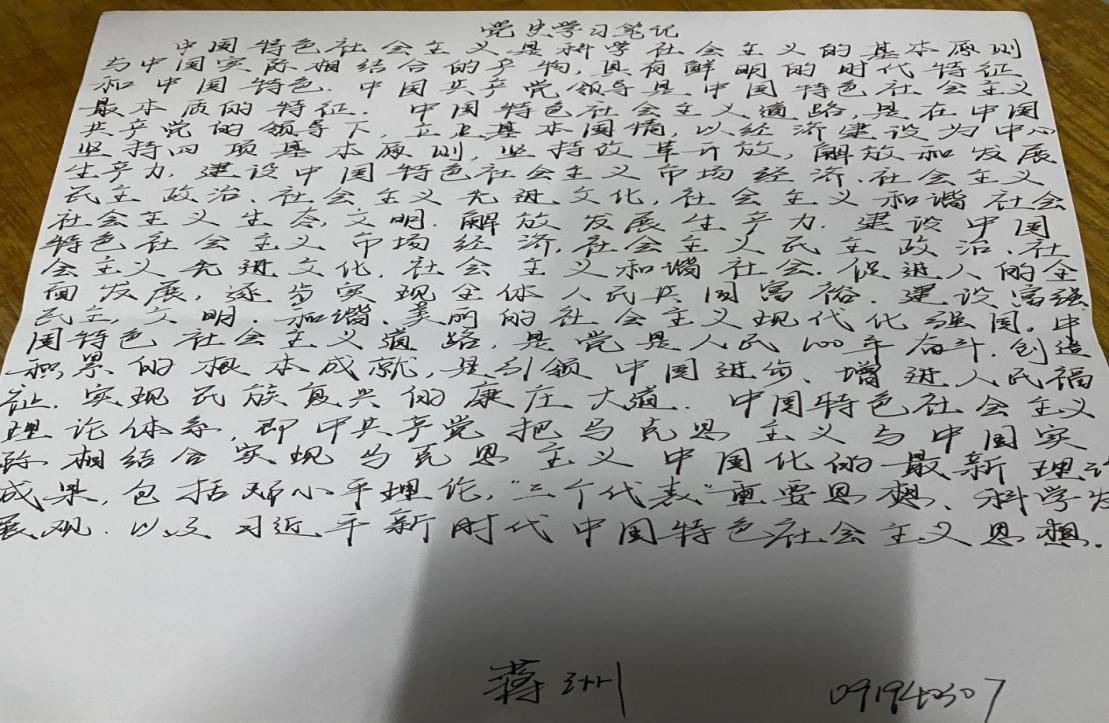 党史学习笔记
中国特色社会主义是科学社会主义的基本原则
与中国实际相结合的产物,具有鲜明的时代特征
和中国特色.中国共产党领导是中国特色社会主义
最本质的特征.中国特色社会主义道路,是在中国
共产党的领导下,立足基本国情,以经济建设为中心
坚持四项基本原则,坚持改革开放,解放和发展
生产力.建设中国特色社会主义市场经济、社会主义
民主政治、社会主义先进文化,社会主义和谐社会
社会主义生态文明.解放发展生产力.建设中国
特色社会主义市场经济,社会主义民主政治、社
会主义先进文化,社会主义和谐社会.促进人的全
面发展,逐步实现全体人民共同富裕.建设富强
民主,文明.和谐、美丽的社会主义现代化强国。中
国特色社会主义道路,是党是人民100年奋斗.创造
积累的根本成就,是引领中国进步、增进人民福
祉.实现民族复兴的康庄大道.中国特色社会主义
理论体系,即中共产党把马克思主义与中国实
际相结合实现马克思主义中国化的最新理论
成果,包括邓小平理论,"三个代表"重要思想、科学发
展观.以及习近平新时代中国特色社会主义思想.
蒋洲 091940307